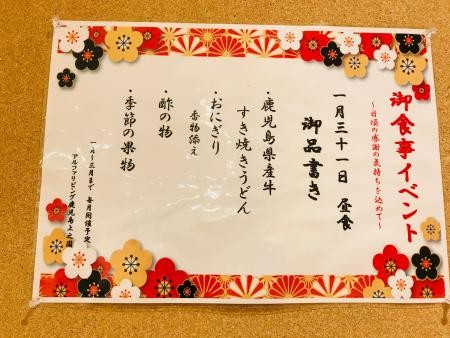 御食事イベント
～日頃の感謝の気持ちを込めて～
一月三十一日　昼食
御品書き
・鹿児島県産牛
すき焼きうどん
・おにぎり
香物添え
・酢の物
・季節の果物
一月～三月まで　毎月開催予定
アルファリビング鹿児島上之園